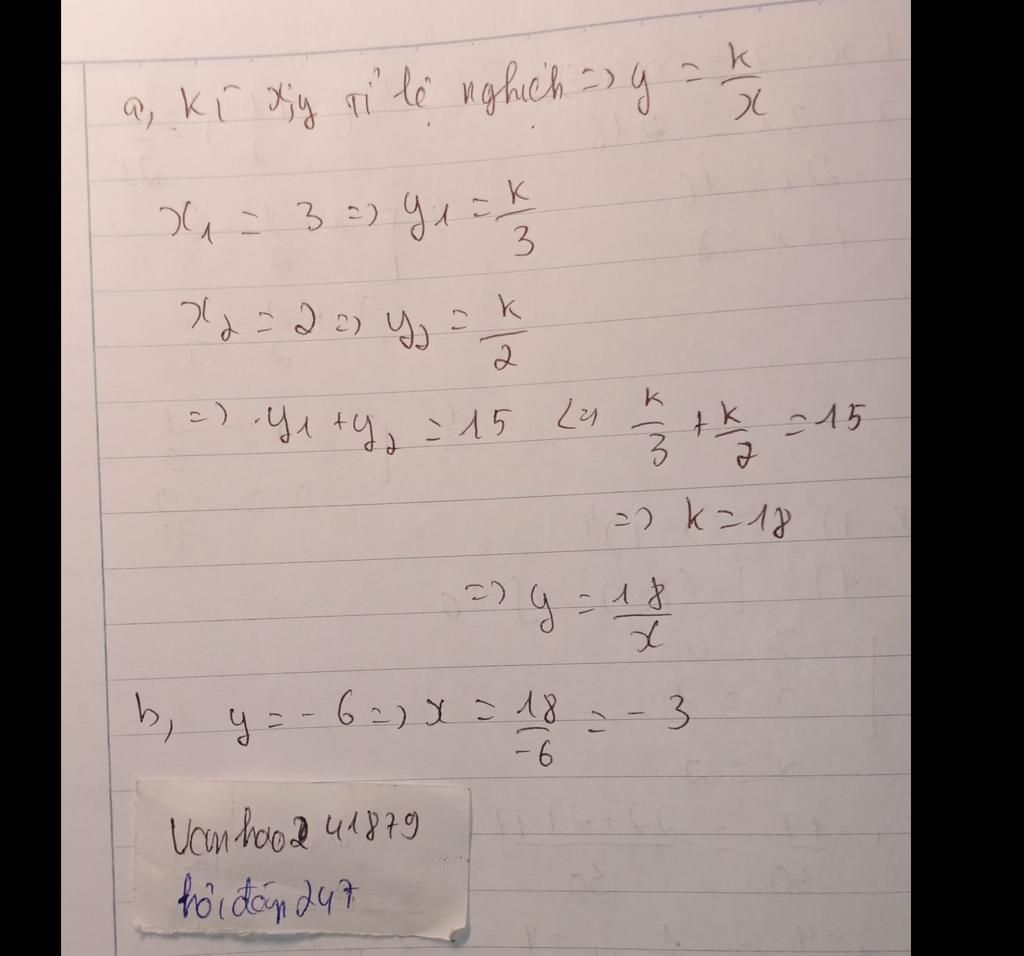 a, Kĩ x;y tỉ lệ nghịch => y = k/x
x₁ = 3 => y₁ = k/3
x₂ = 2 => y₂ = k/2
=> y₁ + y₂ = 15 <=> k/3 + k/2 = 15
=> k = 18
=> y = 18/x
b, y = -6 => x = 18/-6 = -3
Vanhao2 41879
hỏi đáp 247